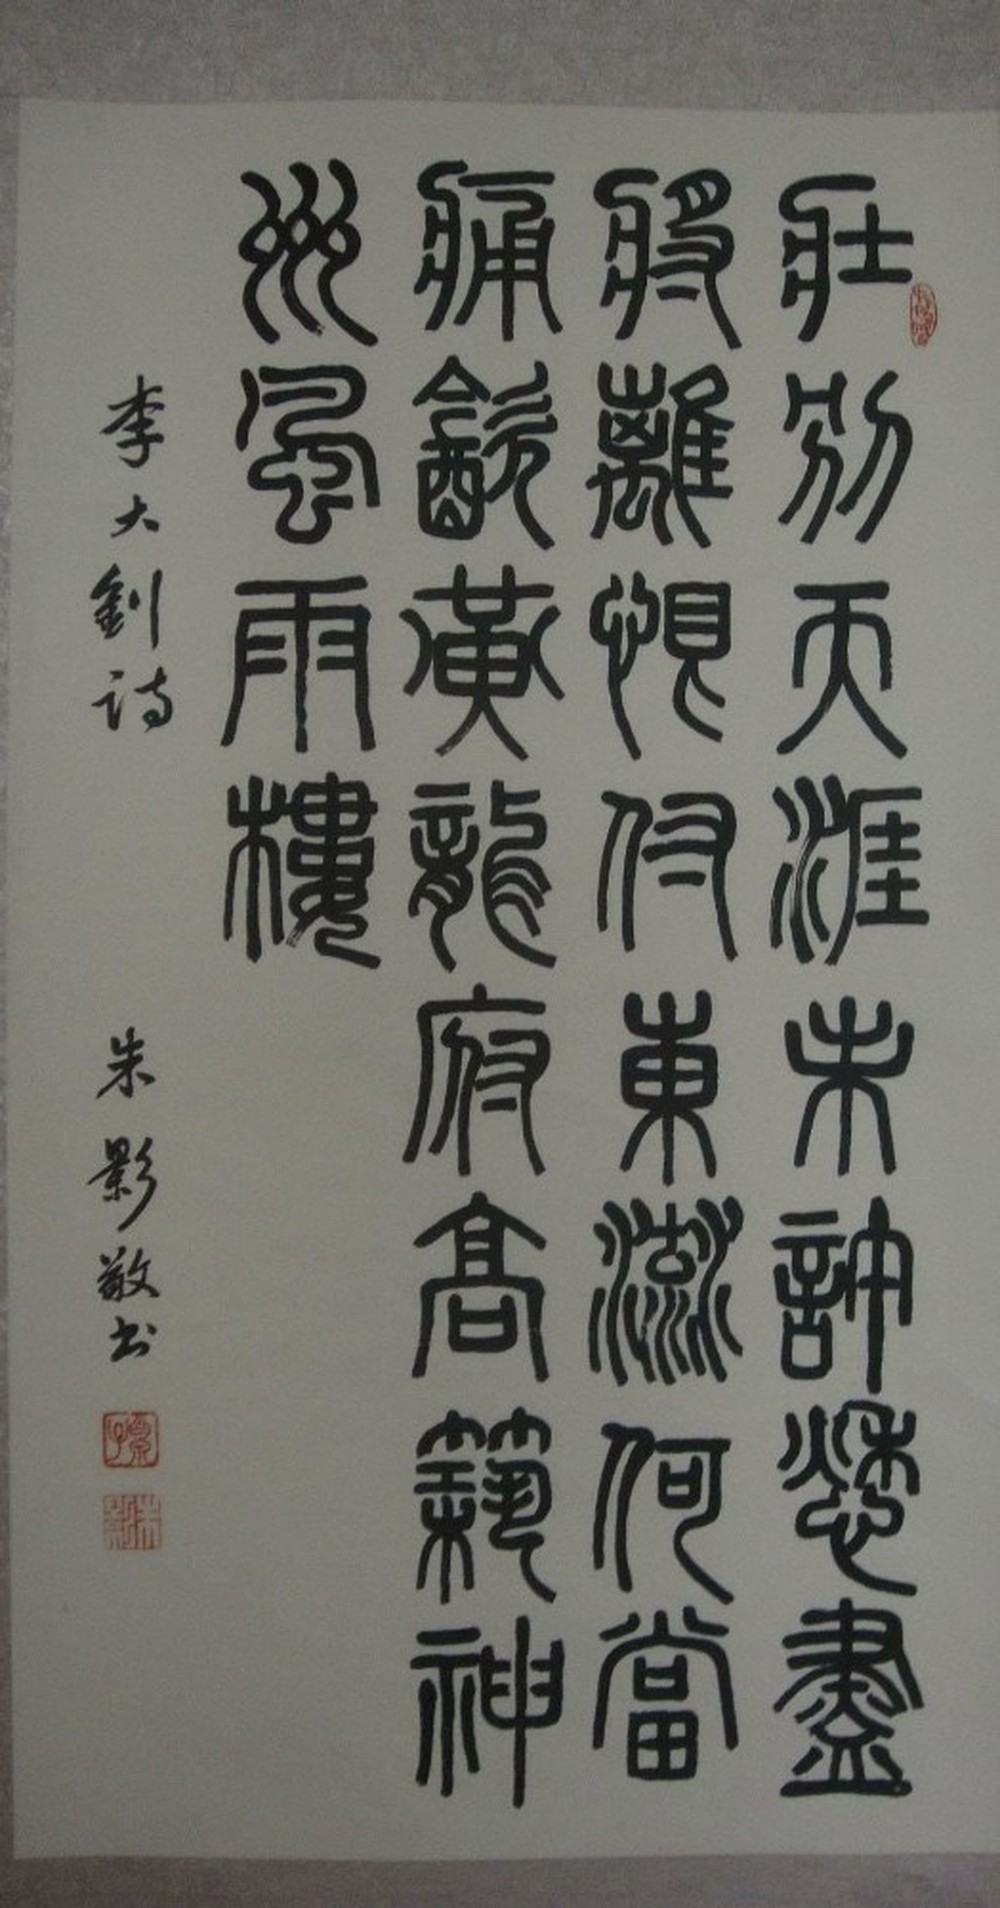 壯別天涯未許愁盡
將離恨付東流何當
痛飲黃龍府高築神
州風雨樓
李大釗詩
朱影敬书